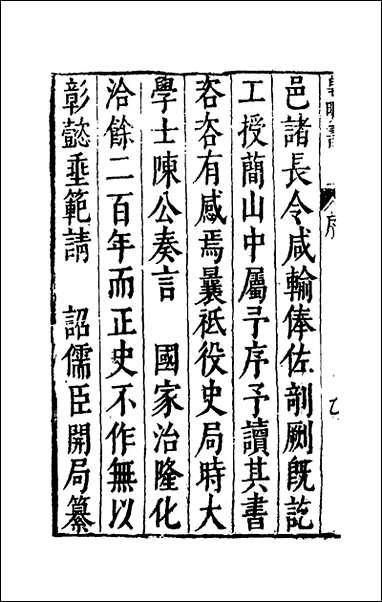 邑諸長令咸輸俸佐剞劂既訖
工授簡山中屬予序予讀其書
咨咨有感焉曩祇役史局時大
學士陳公奏言　國家治隆化
洽餘二百年而正史不作無以
彰懿垂範請　詔儒臣開局纂